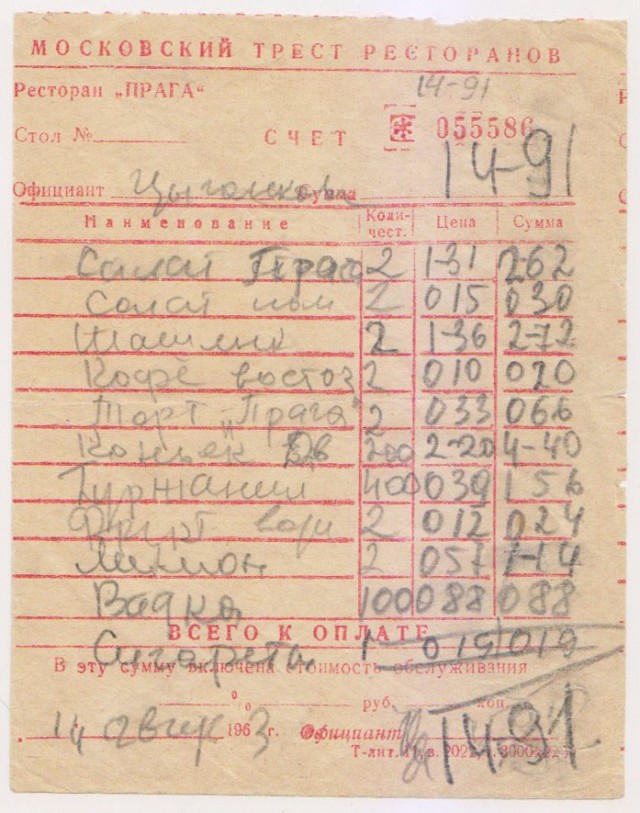 МОСКОВСКИЙ ТРЕСТ РЕСТОРАНОВ
Ресторан „ПРАГА“ 14-91
Стол № СЧЕТ 055586
14-91
Официант Сумма
Наименование Коли-чест. Цена Сумма
Салат Праг 2 1-31 2-62
Салат пом 2 015 030
Шашлык 2 1-36 2-72
Кофе восточ 2 010 020
Торт „Прага“ 2 033 066
Коньяк 200 2-20 4-40
Гурджаани 400 039 1 56
Фрукт вода 2 012 024
Лимон 2 057 1-14
Водка 100 088 088
ВСЕГО К ОПЛАТЕ
Сигареты 1 019 019
В эту сумму включена стоимость обслуживания
% руб. коп.
14 август 1963 г. Официант 14-91
Т-лит.